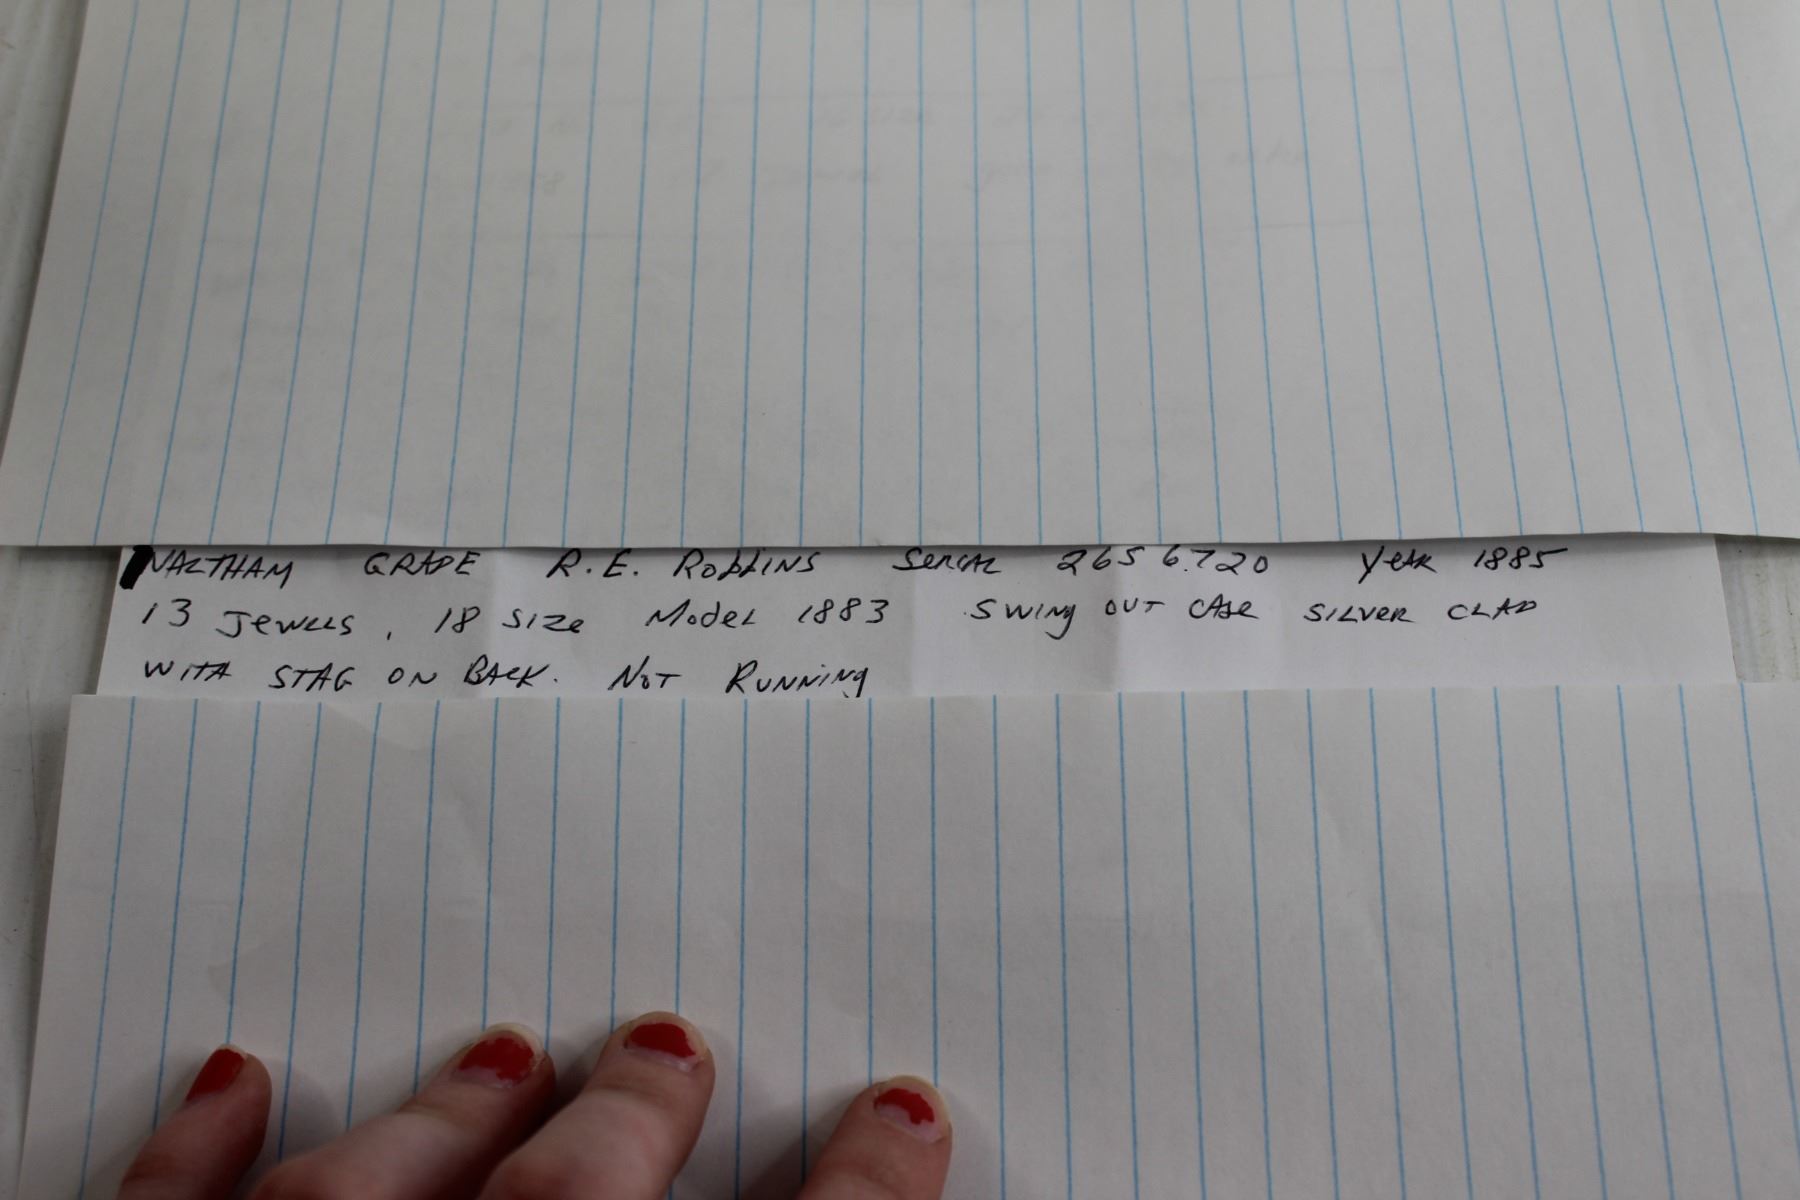 WALTHAM GRADE R.E. Robbins SERIAL 2656720 YEAR 1885
13 JEWELS, 18 SIZE MODEL 1883 SWING OUT CASE SILVER CLAD
WITH STAG ON BACK. NOT RUNNING